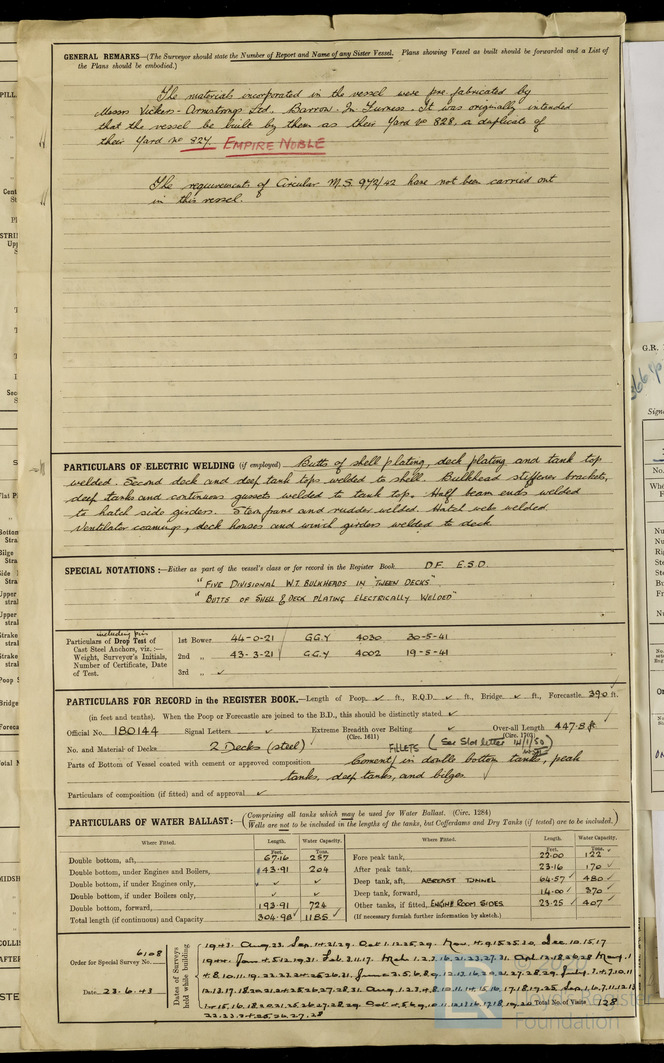 GENERAL REMARKS—(The Surveyor should state the Number of Report and Name of any Sister Vessel. Plans showing Vessel as built should be forwarded and a List of
the Plans should be embodied.)
The materials incorporated in the vessel were pre fabricated by
Messrs Vickers-Armstrongs Ltd. Barrow. In Furness. It was originally intended
that the vessel be built by them as their Yard No 828, a duplicate of
their Yard No 827. EMPIRE NOBLE
The requirements of Circular M.S. 972/42 have not been carried out
in this vessel.
PARTICULARS OF ELECTRIC WELDING (if employed) Butts of shell plating, deck plating and tank top
welded. Second deck and deep tank tops welded to shell. Bulkhead stiffener brackets,
deep tanks and continuous gussets welded to tank top. Half beam ends welded
to hatch side girders. Stern frame and rudder welded. Hatch webs welded.
Ventilator coamings, deck houses and winch girders welded to deck
SPECIAL NOTATIONS:—Either as part of the vessel's class or for record in the Register Book DF. E.S.D.
"FIVE DIVISIONAL W.T. BULKHEADS IN 'TWEEN DECKS"
"BUTTS OF SHELL & DECK PLATING ELECTRICALLY WELDED"
including pin
Particulars of Drop Test of
Cast Steel Anchors, viz.:—
Weight, Surveyor's Initials,
Number of Certificate, Date
of Test.
1st Bower 44-0-21 G.G.Y 4030 30-5-41
2nd „ 43-3-21 G.G.Y 4002 19-5-41
3rd „ ✓
PARTICULARS FOR RECORD in the REGISTER BOOK.—Length of Poop ✓ ft., R.Q.D. ✓ ft., Bridge ✓ ft., Forecastle 39.0 ft.
(in feet and tenths). When the Poop or Forecastle are joined to the B.D., this should be distinctly stated ✓
Official No. 180144 Signal Letters ✓ Extreme Breadth over Belting ✓ Over-all Length 447.8 ft
(Circ. 1611) (Circ. 1703)
No. and Material of Decks 2 Decks (steel) FILLETS (See Slos letter 14/1/50)
Parts of Bottom of Vessel coated with cement or approved composition Cement in double bottom tanks, peak
tanks, deep tanks, and bilges.
Particulars of composition (if fitted) and of approval ✓
PARTICULARS OF WATER BALLAST:—(Comprising all tanks which may be used for Water Ballast. (Circ. 1284)
Wells are not to be included in the lengths of the tanks, but Cofferdams and Dry Tanks (if tested) are to be included.)
Where Fitted. Length. Water Capacity. Where Fitted. Length. Water Capacity.
Feet. Tons. Feet. Tons.
Double bottom, aft, 67.16 257 Fore peak tank, 22.00 122
Double bottom, under Engines and Boilers, 43.91 204 After peak tank, 23.16 170
Double bottom, if under Engines only, ✓ ✓ Deep tank, aft, ABREAST TUNNEL 64.57 480
Double bottom, if under Boilers only, ✓ ✓ Deep tank, forward, 14.00 370
Double bottom, forward, 193.91 724 Other tanks, if fitted, ENGINE ROOM SIDES 23.25 407
Total length (if continuous) and Capacity 304.98 1185 (If necessary furnish further information by sketch.)
Order for Special Survey No. 6108
Date 23.6.43
Dates of Surveys
held while building
1943. Aug. 23. Sep. 14.21.29. Oct. 1.12.25.29. Nov. 4.9.15.25.30. Dec. 10.15.17
Total No. of Visits 128
Foundation